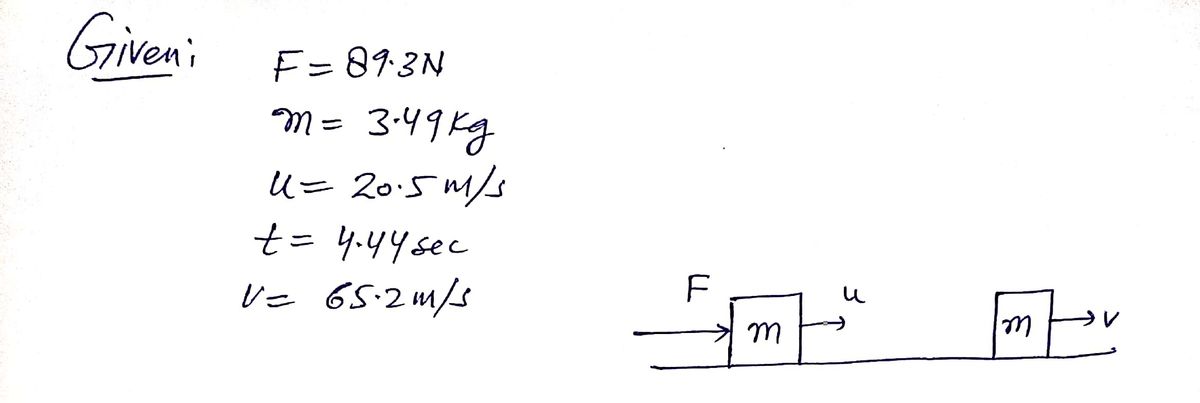 Given:
F = 89.3N
m = 3.49 kg
u = 20.5 m/s
t = 4.44 sec
V = 65.2 m/s
F
m
u
m
v